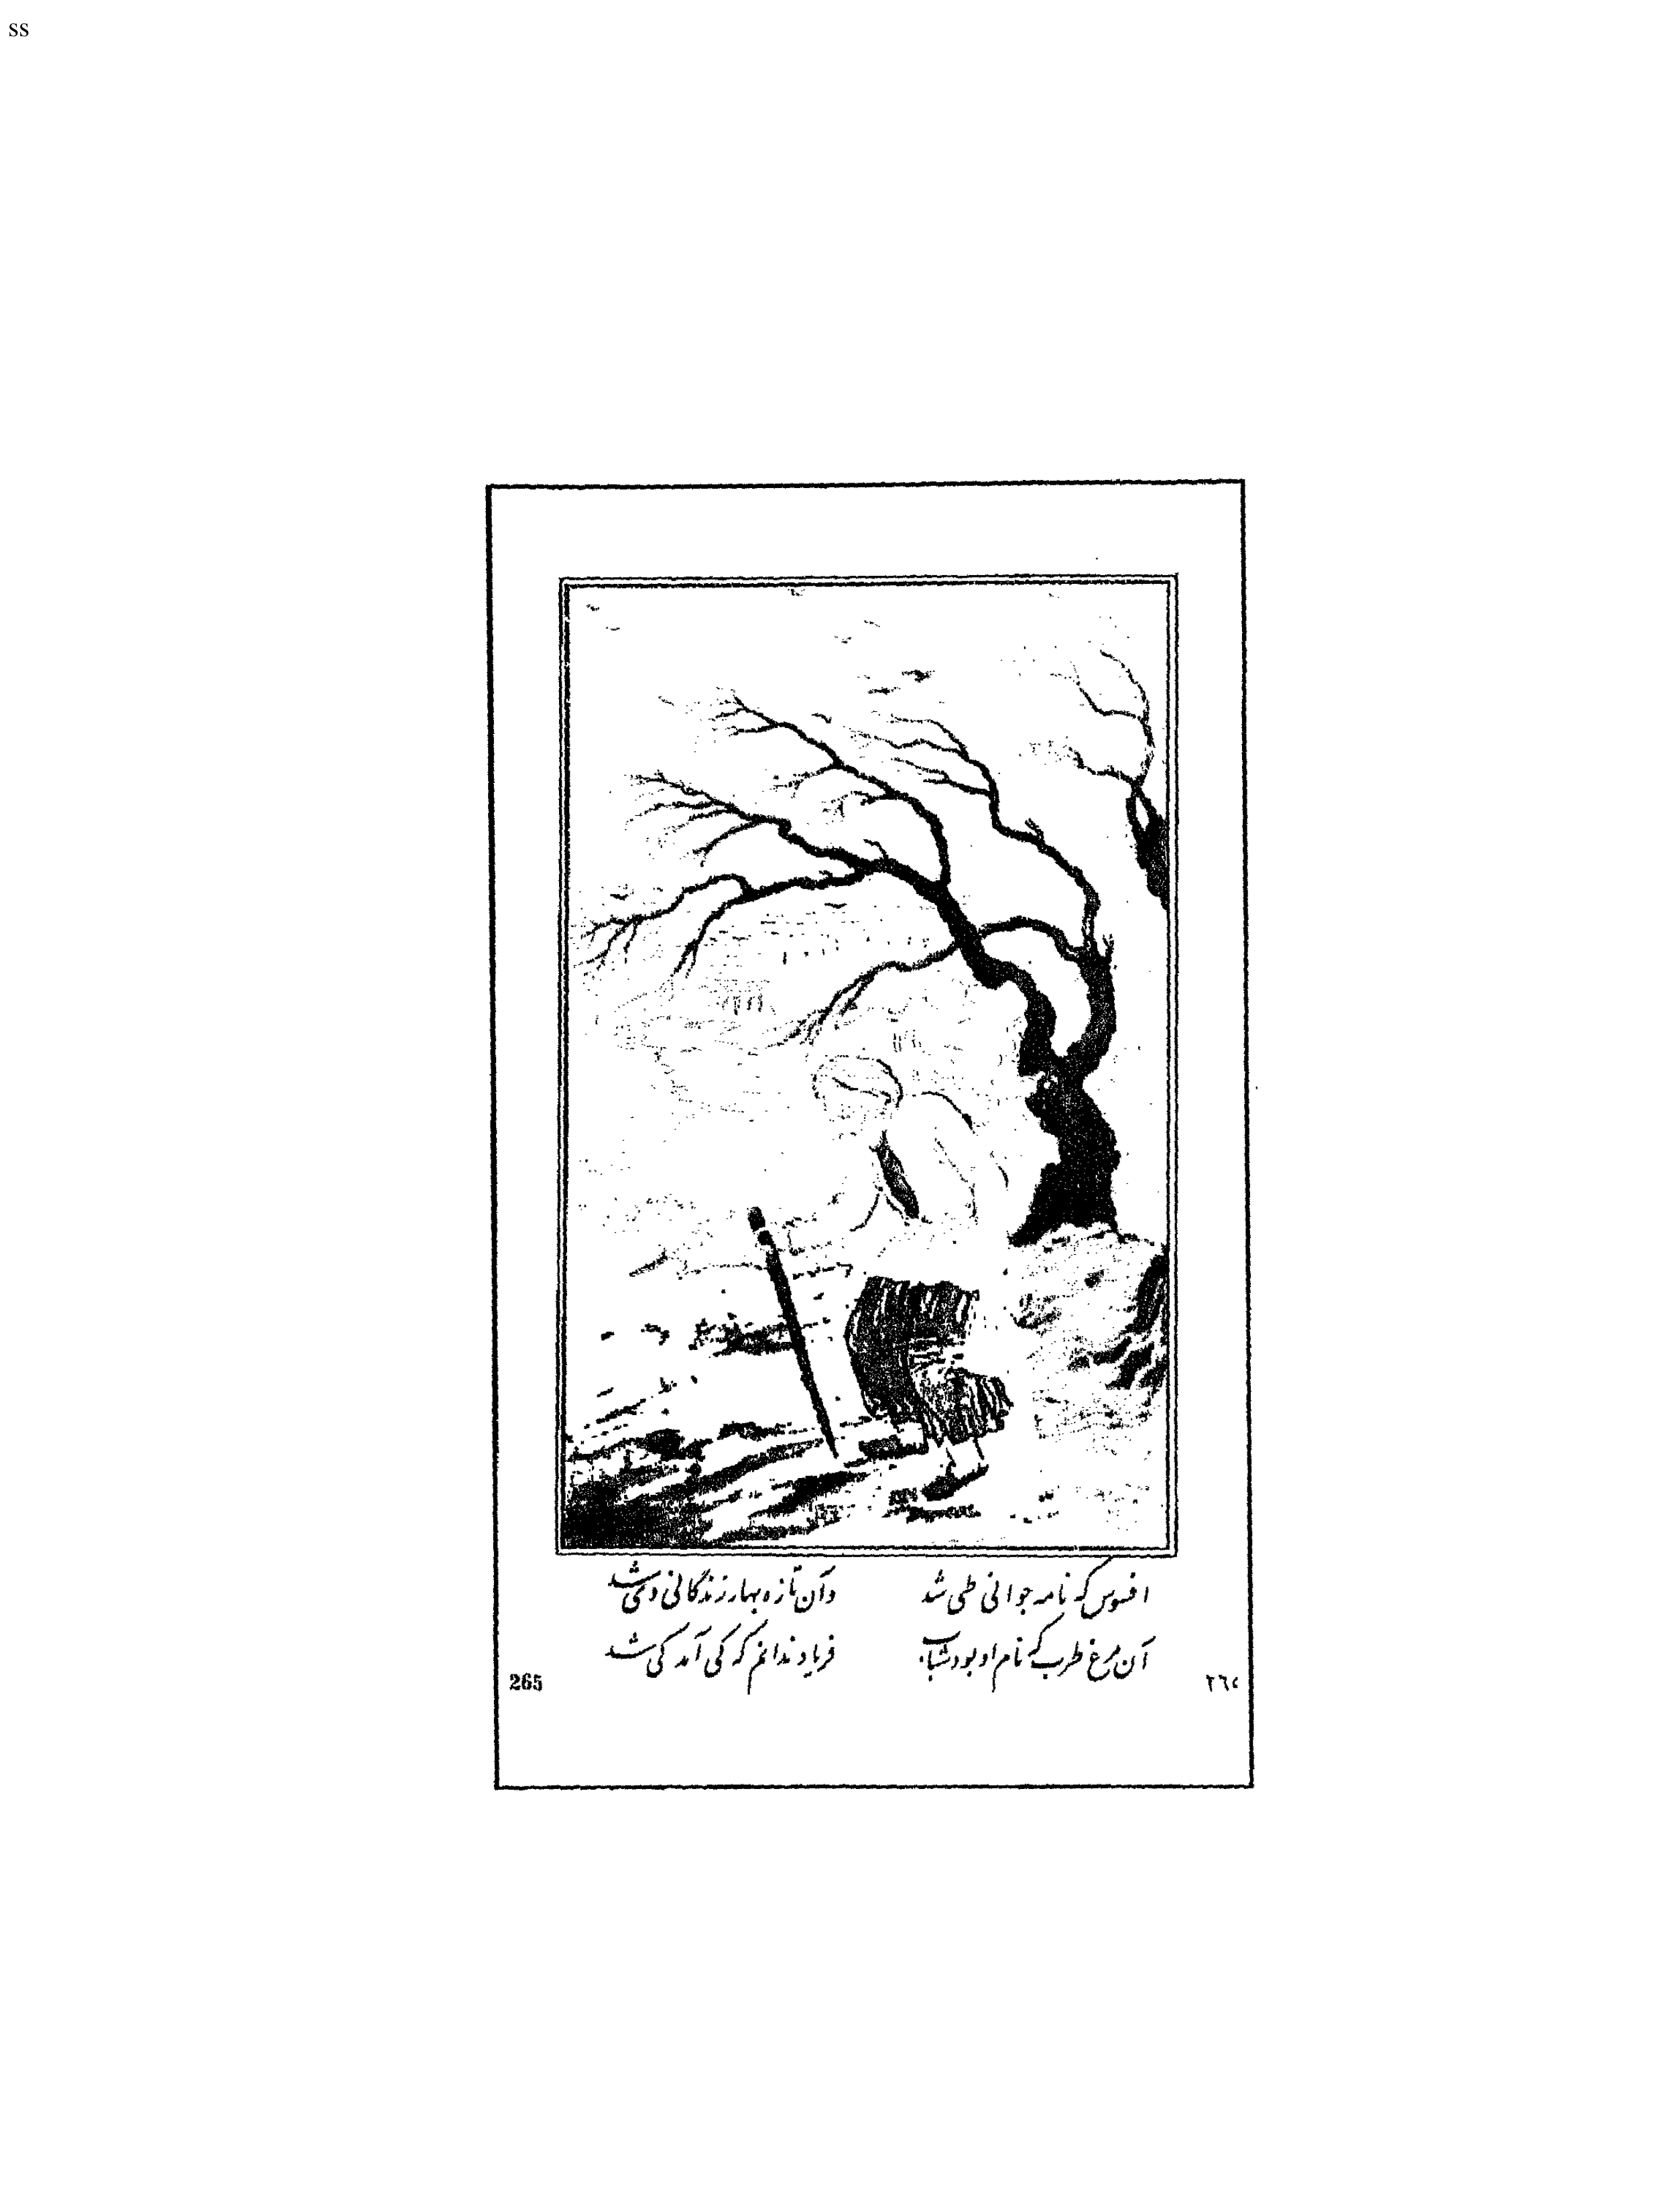 ss
افسوس که نامه جوانی طی شد وآن تازه بهار زندگانی دی شد
آن مرغ طرب که نام او بود شباب فریاد ندانم که کی آمد کی شد
265